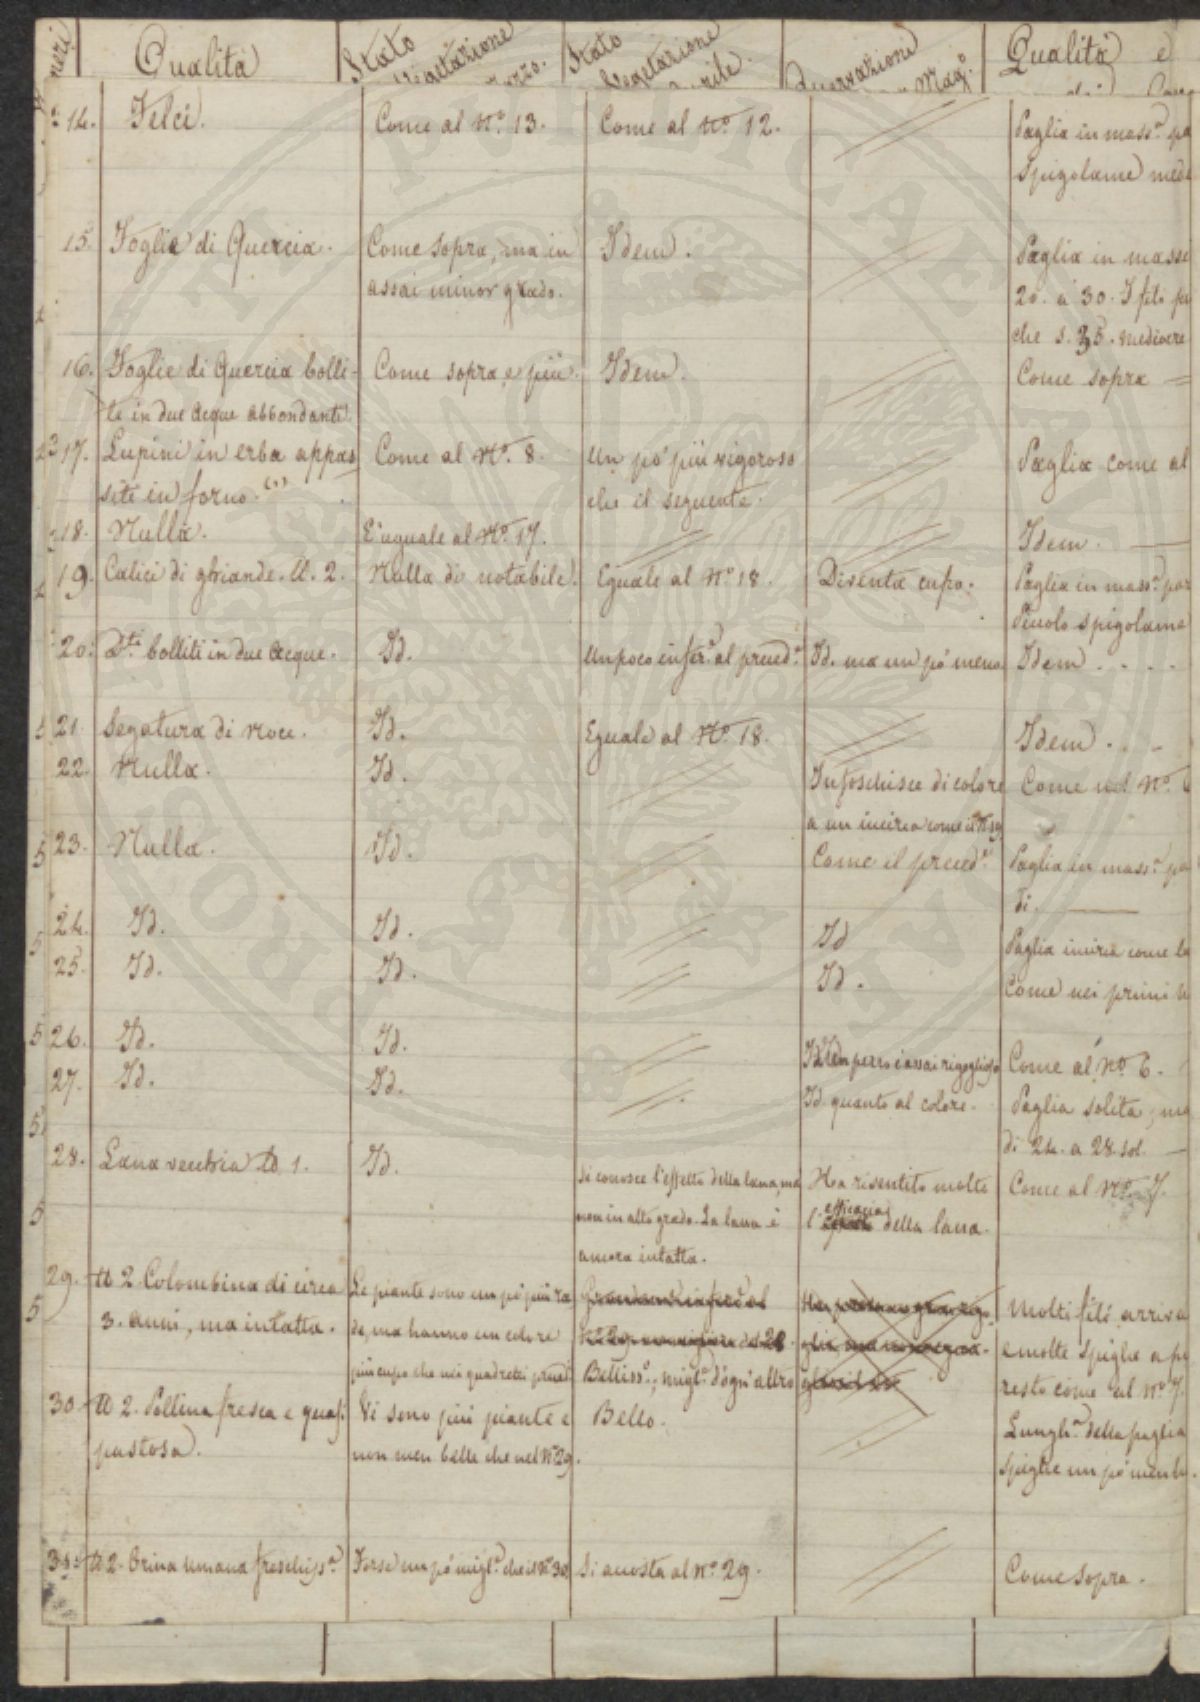 neri. Qualità Stato Vegetazione Marzo. Stato Vegetazione Aprile. Osservazioni Magº. Qualità e
14. Felci. Come al Nº 13. Come al Nº 12. Paglia in massª
Spigolame
15. Foglie di Quercia. Come sopra, ma in Idem. Paglia in mass
assai minor grado. 20. a 30. I fili
che s. 35. mediocre
16. Foglie di Quercia bolli- Come sopra, e più. Idem. Come sopra
te in due acque abbondanti.
17. Lupini in erba appas Come al Nº. 8. Un po' più vigoroso Paglia come al
site in forno. (1) che il seguente.
18. Nulla. E' uguale al Nº. 17. Idem.
19. Calici di ghiande. ll. 2. Nulla di notabile. Eguale al Nº 18. Diventa cupo. Paglia in massª
Piccolo spigolame
20. Dti bolliti in due acque. Id. Un poco infer. al preced.e Id. ma un po' meno Idem....
21. Segatura di Noce. Id. Eguale al Nº. 18. Idem...
22. Nulla. Id. Infoschisce di colore Come nel Nº.
a un incirca come il Nº 19
23. Nulla. Id. Come il preced.e Paglia in massª
di.
24. Id. Id. Id Paglia incirca come
25. Id. Id. Id. Come nei primi
26. Id. Id. Id. Come al Nº. 6.
27. Id. Id. Id. quanto al colore. Paglia solita,
di 24. a 28. sol.
28. Lana vecchia lb 1. Id. Si conosce l'effetto della lana, ma Ha risentito molto Come al Nº. 7.
non in alto grado. La lana è l'efficacia della lana.
ancora intatta.
29. lb 2. Colombina di circa Le piante sono un po' più ra Molti fili arriva
3. anni, ma intatta. de, ma hanno un colore e molte spighe a
più cupo che nei quadretti preced. Belliss.º, migl.e d'ogn'altro resto come al Nº 7.
30. lb 2. Pollina fresca e quasi Vi sono più piante e Bello. Lungh.ª della paglia
pastosa. non men belle che nel Nº 29. spighe un po' meno
31. lb 2. Orina umana freschis.ª Forse un po' migl.e che il Nº 30 Si accosta al Nº. 29. Come sopra.